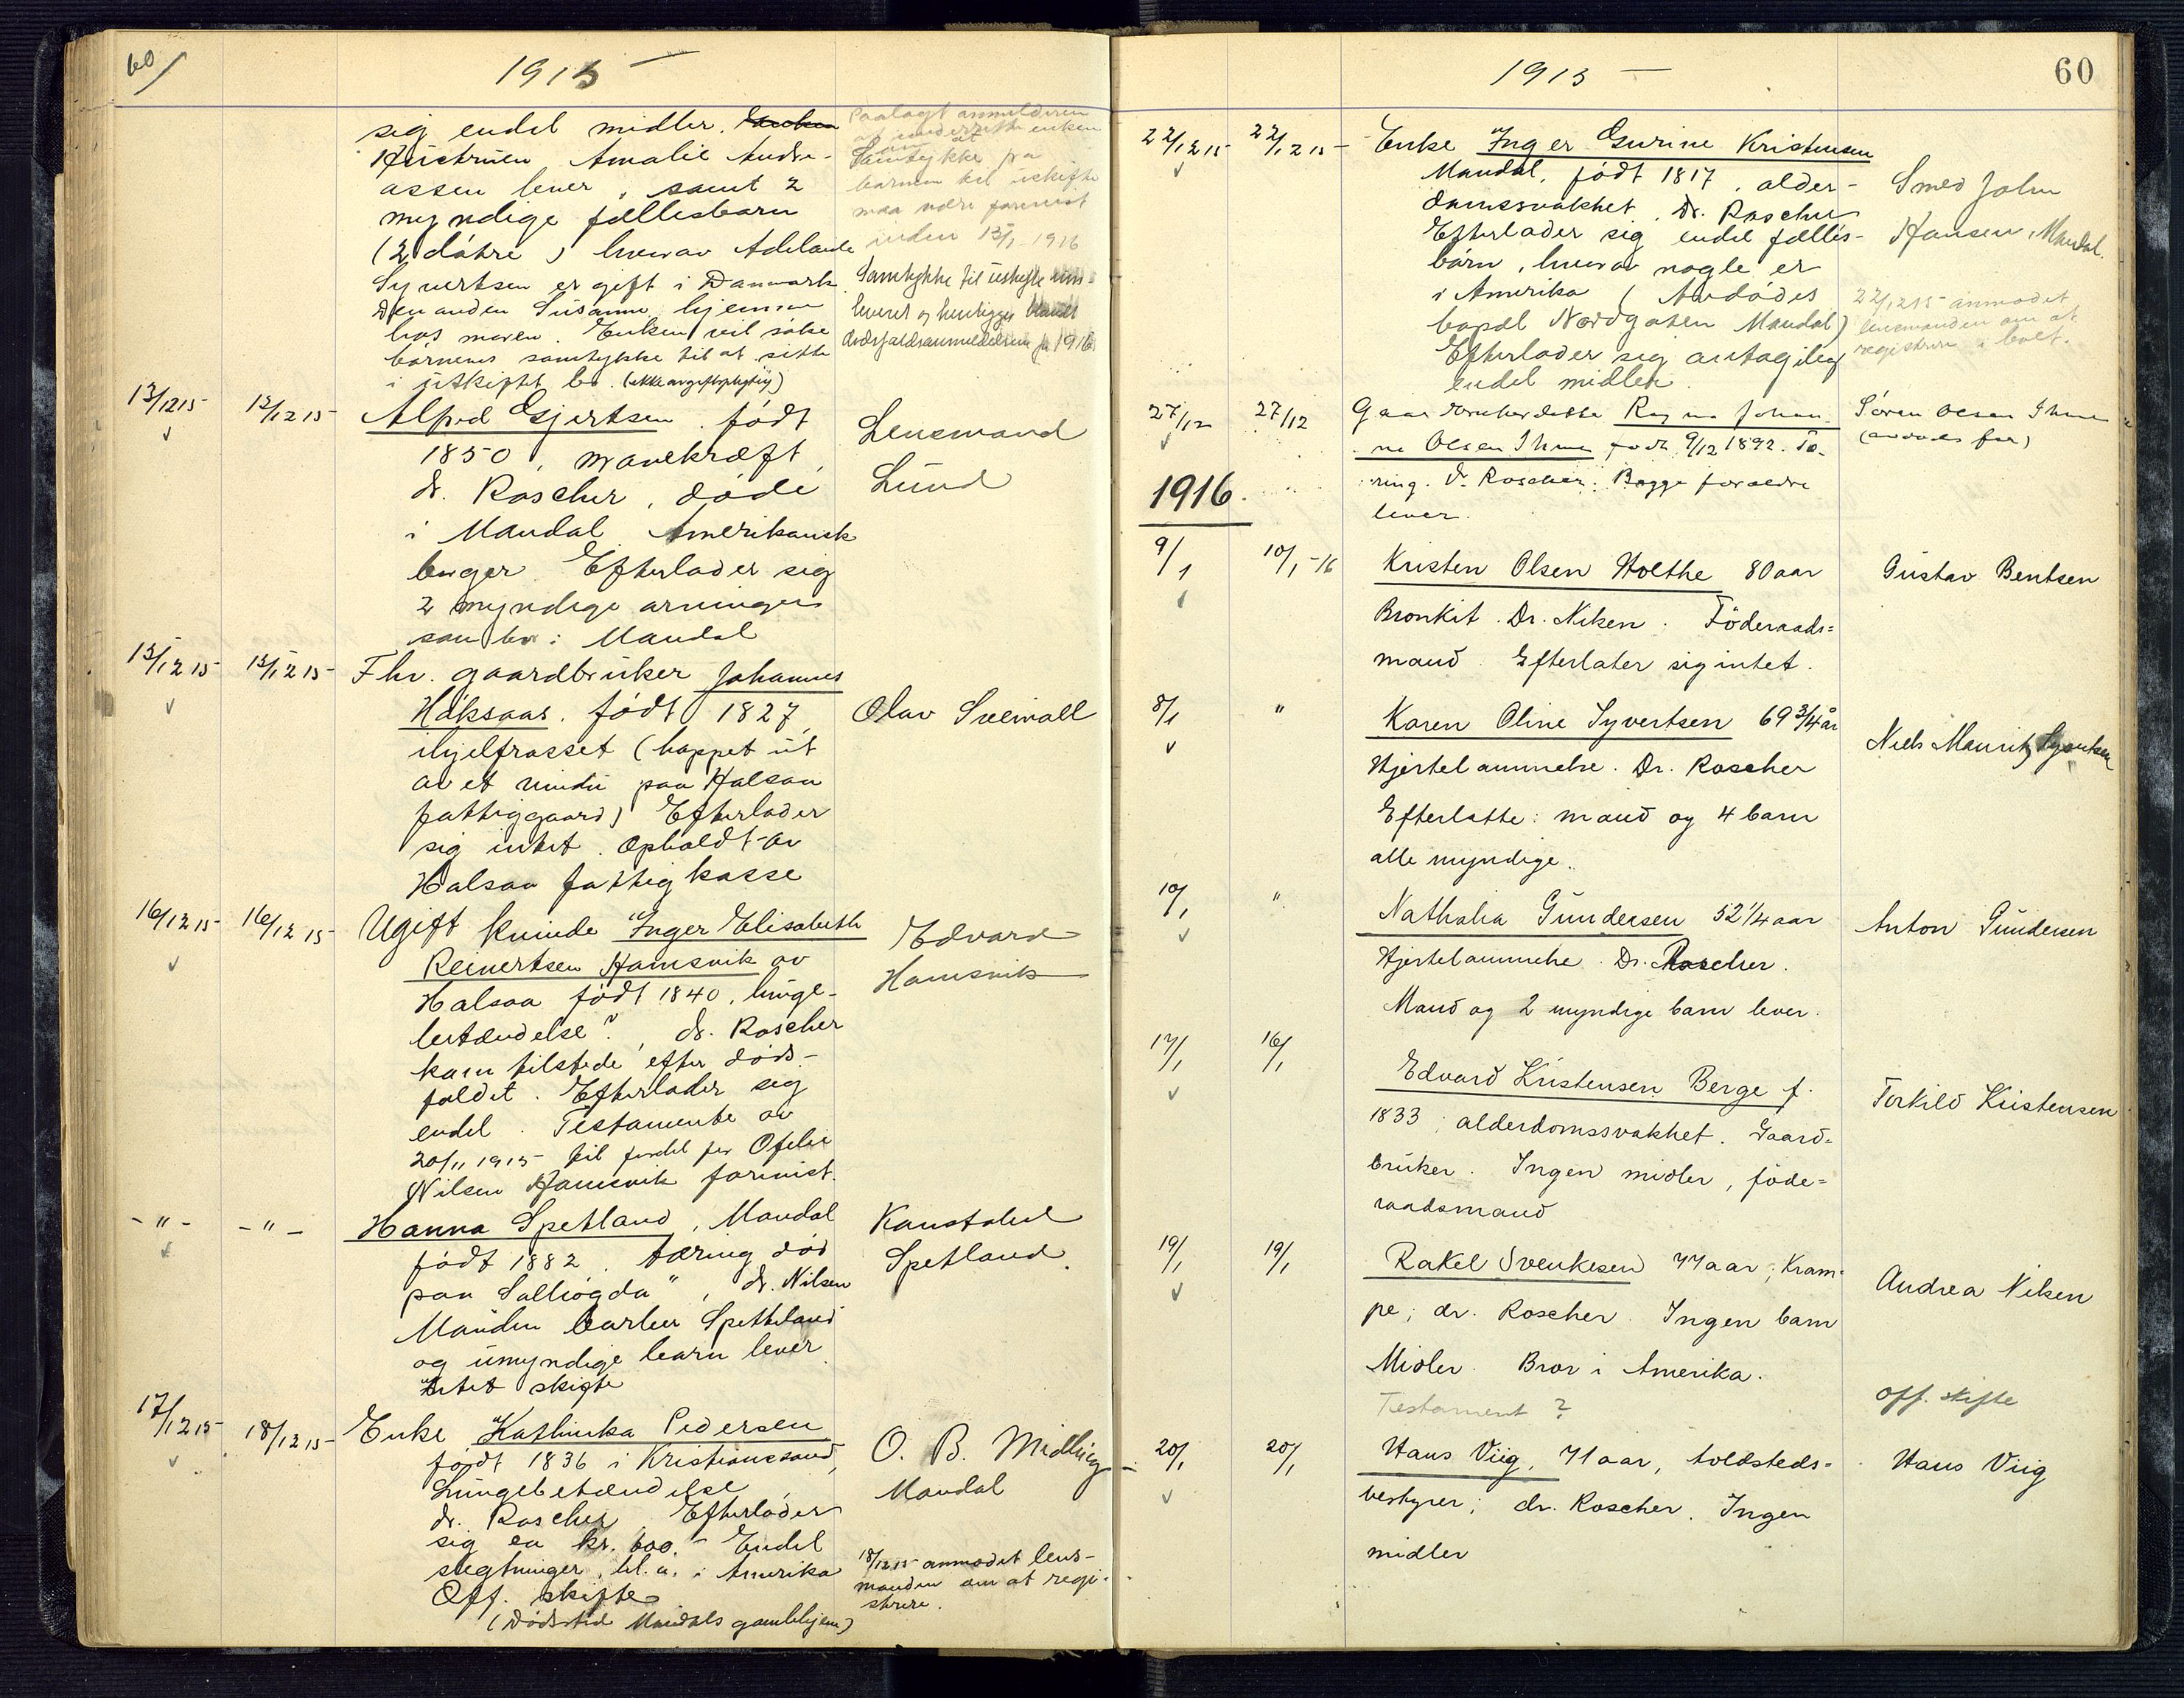 60/
1915 —
sig endel midler. Enken
Hustruen Amalie Andre-
assen lever, samt 2
myndige fællesbarn
(2 døtre) hvorav Adelaide
Syvertsen er gift i Danmark
den anden Susanne hjemme
hos moren. Enken vil søke
børnenes samtykke til at sitte
i uskiftet bo. (ikke avgiftspligtig)
Paalagt anmelderen
at underrette enken
om at
Samtykke fra
barnen til uskifte
maa være
inden 15/1 1916
Samtykke til uskifte
leveret og henligger blandt
dødsfaldsanmeldelserne for 1916
13/12 15 13/12 15 Alfred Gjertsen. født
1850, mavekræft,
dr. Roscher, døde
i Mandal Amerikansk
borger. Efterlader sig
2 myndige arvinger
som bor i Mandal
Lensmand
Lund
15/12 15 15/12 15 Fhv. gaardbruker Johannes
Høksaas. født 1827,
ihjelfrosset (hoppet ut
av et vindu paa Halsaa
fattiggaard) Efterlader
sig intet. Opholdt av
Halsaa fattigkasse
Olav Sveinall
16/12 15 16/12 15 Ugift kvinde Inger Elisabeth
Reinertsen Hamsvik av
Halsaa født 1840, lunge-
betændelse?, dr. Roscher
kom tilstede efter døds-
faldet. Efterlader sig
endel. Testamente av
20/11 1915 til fordel for Ofelie
Nilsen Hamsvik forevist.
Edvard
Hamsvik
- " - - " - Hanna Spetland, Mandal
født 1882. tæring død
paa Solhøgda", dr. Nilsen
Manden Spetteland
og umyndige barn lever
Intet skifte
Konstabel
Spetland.
17/12 15 18/12 15 Enke Kathinka Pedersen
født 1836 i Kristianssand,
Lungebetændelse,
dr. Roscher Efterlader
sig ca kr. 600.- Endel
slegtninger, bl. a. i Amerika
Off. skifte
(Dødssted Mandals gamlehjem)
O. B. Midling
Mandal
18/12 15 anmodet lens-
manden om at regi-
strere.
60
1915 —
22/12 15 22/12 15 - Enke Inger Gurine Kristensen
Mandal, født 1817, alder-
domssvakhet, Dr. Roscher
Efterlader sig endel fælles-
børn, hvorav nogle er
i Amerika (Avdødes
bopæl Nordgaten Mandal)
Efterlader sig antagelig
endel midler.
Smed John
Hansen, Mandal.
22/12 15 anmodet
lensmanden om at
registrere i boet.
27/12 27/12 Gaardbrukerdatter Ragna Johan-
ne Olsen Ihme født 9/12 1892. Tæ-
ring. Dr. Roscher. Begge forældre
lever.
Søren Olsen Ihme
(avdødes far)
1916.
9/1 10/1 -16 Kristen Olsen Holthe 80 aar
Bronkit. Dr. Nilsen. Föderaads=
mand. Efterlater sig intet.
Gustav Bentsen
8/1 " Karen Oline Syvertsen 69 3/4 år
Hjertelammelse. Dr. Roscher
Efterlatte: mand og 4 barn
alle myndige.
Niels Mauritz Syvertsen
10/1 " Nathalia Gundersen 52 1/4 aar
Hjertelammelse. Dr. Roscher.
Mand og 2 myndige barn lever.
Anton Gundersen
17/1 16/1 Edvard Kristensen Berge f.
1833; alderdomssvakhet. Gaard=
bruker. Ingen midler, föde=
raadsmand
Torkild Kristensen
19/1 19/1 Rakel Svenkesen 77 aar; Kram=
pe; dr. Roscher. Ingen barn
Midler. Bror i Amerika.
Testament?
Andrea Nilsen
Off. skifte
20/1 20/1 Hans Viig, 71 aar, toldsteds=
bestyrer; dr. Roscher. Ingen
midler
Hans Viig